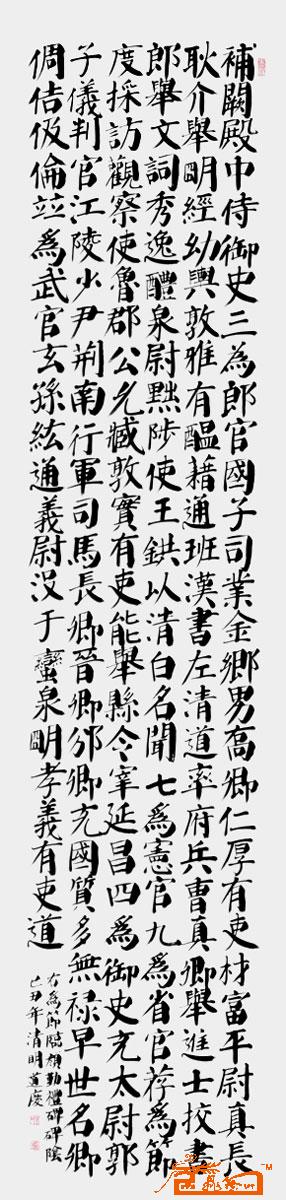 補闕殿中侍御史三為郎官國子司業金鄉男喬卿仁厚有吏材富平尉真長
耿介舉明經幼輿敦雅有醞藉通班漢書左清道率府兵曹真卿舉進士挍書
郎舉文詞秀逸醴泉尉黜陟使王鉷以清白名聞七爲憲官九爲省官荐爲節
度採訪觀察使魯郡公允臧敦實有吏能舉縣令宰延昌四爲御史充太尉郭
子儀判官江陵少尹荊南行軍司馬長卿晉卿邠卿充國質多無祿早世名卿
倜佶伋倫並爲武官玄孫紘通義尉沒于蠻泉明孝義有吏道
右為節臨顏勤禮碑碑陰
己丑年清明道慶